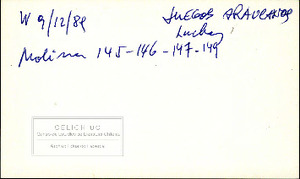 W 9/12/89
JUEGOS ARAUCANOS
Luchas
Molina 145-146-147-149
CELICH UC